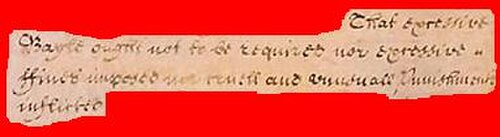 That excessive
Bayle ought not to be required nor excessive
ffines imposed nor cruell and vnusuall Punishments
inflicted